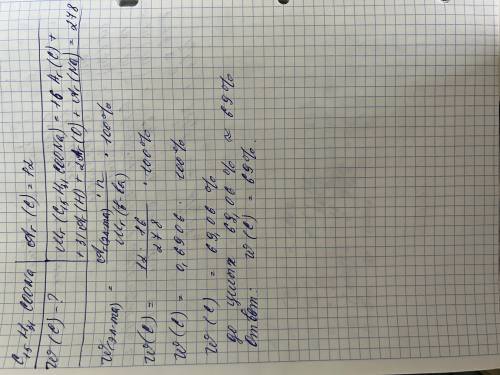 C₁₅H₃₁COONa | Ar(C) = 12
W(C) = ? | Mr(C₁₅H₃₁COONa) = 16 Ar(C) +
+ 31 Ar(H) + 2Ar(O) + Ar(Na) = 278
W(эл-та) = Ar(эл-та) · n / Mr(в-ва) · 100%
W(C) = 12 · 16 / 278 · 100%
W(C) = 0,6906 · 100%
W(C) = 69,06 %
до целых 69,06 % ≈ 69%
Ответ: W(C) = 69%